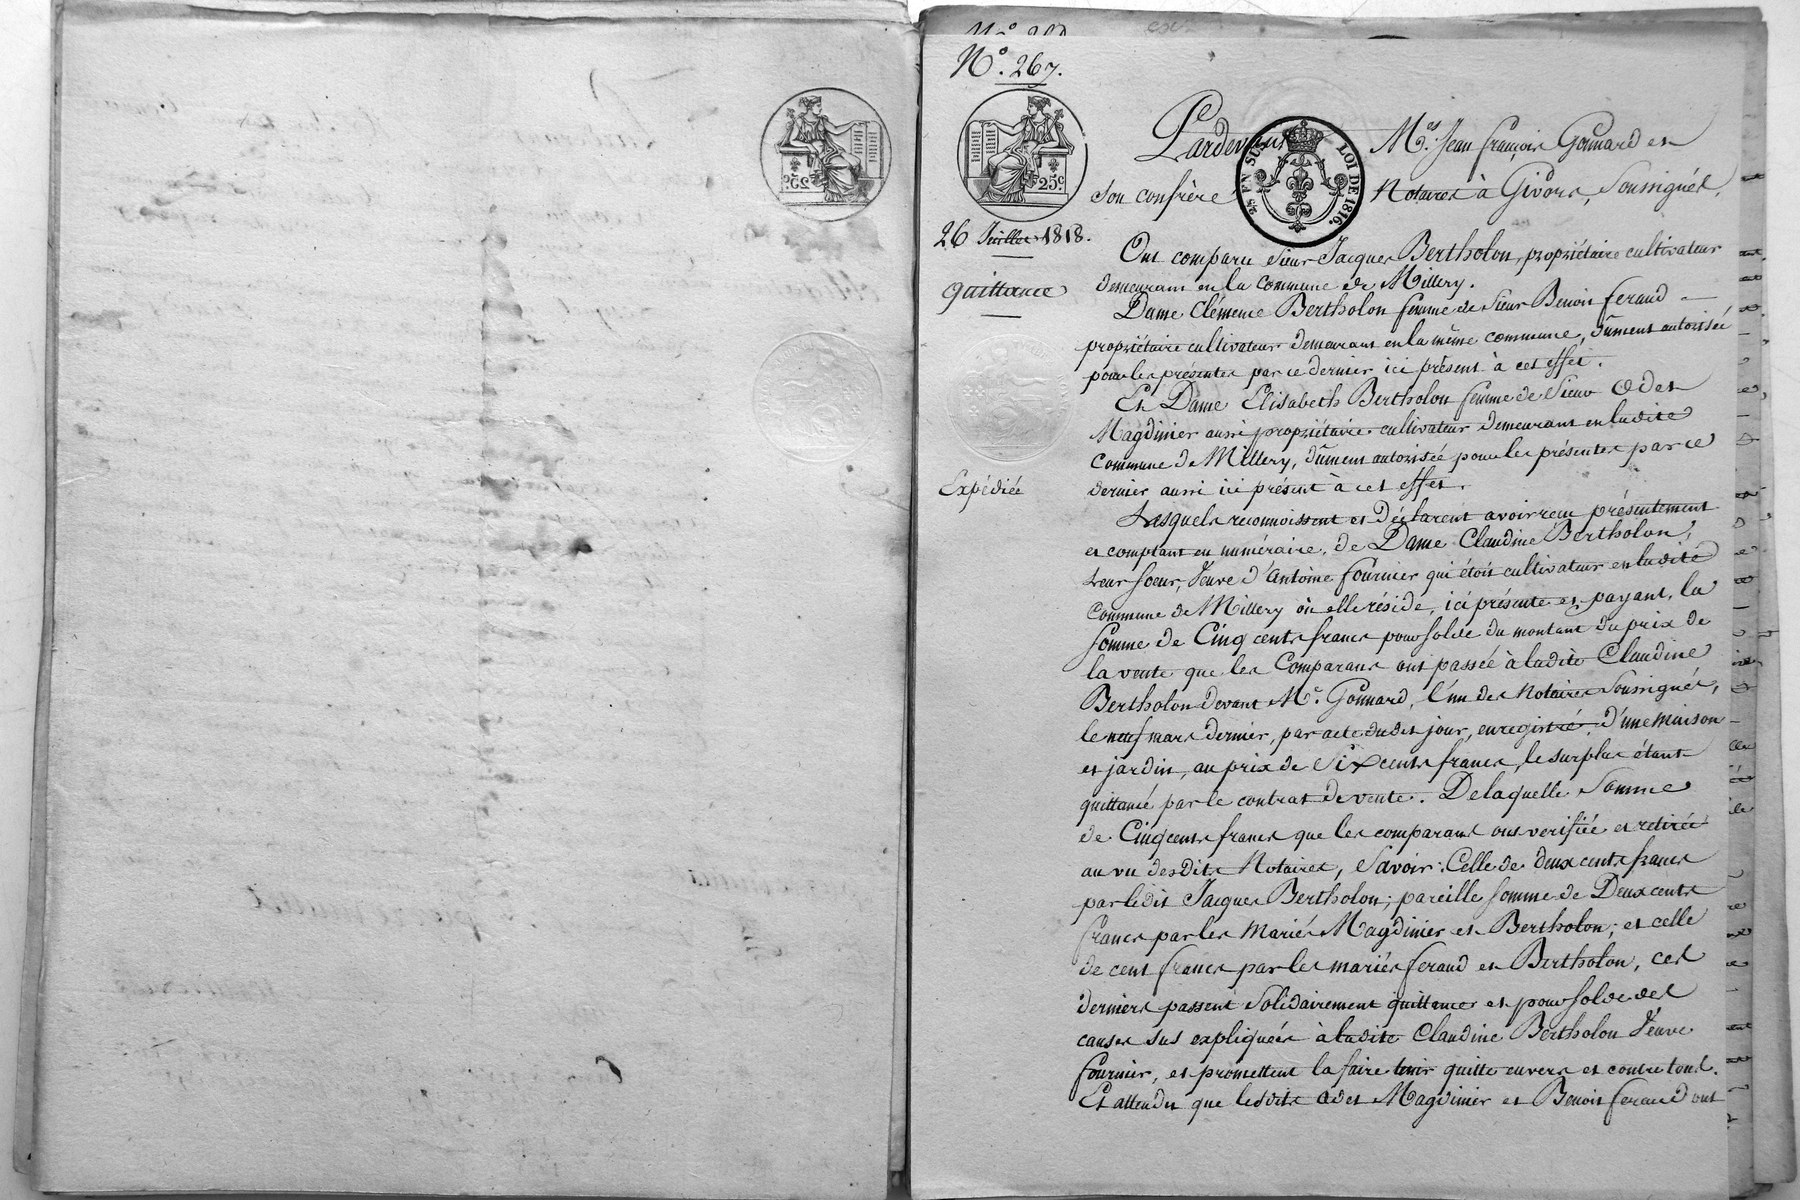 N.° 267.
25c
26 Juillet 1818.
quittance
Expédiée
25 EN SUS LOI DE 1816.
Pardevant M.es Jean françois Gonnard et
son confrère Notaires à Givors, Soussignés,
Ont comparu Sieur Jacques Bertholon, propriétaire cultivateur
demeurant en la Commune de Millery.
Dame Clémence Bertholon femme de Sieur Benoit feraud
propriétaire cultivateur demeurant en la même commune, dûment autorisée
pour les présentes par ce dernier ici présent à cet effet.
Et Dame Elisabeth Bertholon femme de Sieur Odet
Magdinier aussi propriétaire cultivateur demeurant en ladite
Commune de Millery, dûment autorisée pour les présentes par ce
dernier aussi ici présent à cet effet.
Lesquels reconnoissent et déclarent avoir reçu présentement
et comptant en numéraire, de Dame Claudine Bertholon,
leur soeur, Veuve d'Antoine fournier qui étoit cultivateur en ladite
Commune de Millery où elle réside, ici présente et payant, la
somme de Cinq cents francs pour solde du montant du prix de
la vente que les Comparans ont passée à ladite Claudine
Bertholon devant M.e Gonnard, l'un des Notaires Soussignés,
le neuf mars dernier, par acte dudit jour, enregistré, d'une maison
et jardin, au prix de Six cents francs, le surplus étant
quittancé par le contrat de vente. De laquelle Somme
de Cinq cents francs que les comparans ont vérifiée et retirée
au vu desdits Notaires, Savoir: Celle de deux cents francs
par ledit Jacques Bertholon; pareille somme de Deux cents
francs par les Mariés Magdinier et Bertholon; et celle
de cent francs par les mariés feraud et Bertholon, ces
derniers passent solidairement quittance et pour solde des
causes sus expliquées à ladite Claudine Bertholon Veuve
fournier, et promettent la faire tenir quitte envers et contre tous.
Et attendu que lesdits Odet Magdinier et Benoit feraud ont